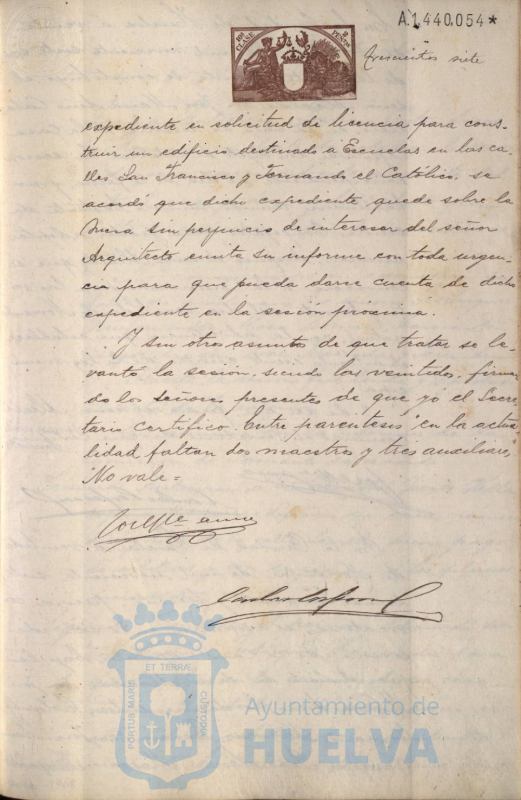 A.1.440.054*
10ª CLASE
2 PESETAS
Trescientos siete
expediente en solicitud de licencia para cons-
truir un edificio destinado a Escuelas en las ca-
lles San Francisco y Fernando el Católico, se
acordó que dicho expediente quede sobre la
Mesa sin perjuicio de interesar del señor
Arquitecto emita su informe con toda urgen-
cia para que pueda darse cuenta de dicho
expediente en la sesión próxima.
Y sin otros asuntos de que tratar se le-
vantó la sesión, siendo las veintidos, firman-
do los señores presentes de que yo el Secre-
tario certifico. Entre parentesis "en la actua-
lidad faltan dos maestros y tres auxiliares"
"No vale=
ET TERRÆ
PORTUS MARIS
CUSTODIA
Ayuntamiento de
HUELVA